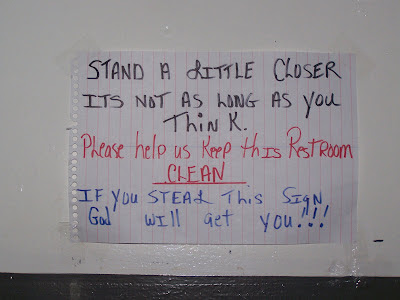 STAND A LITTLE CLOSER
ITS NOT AS LONG AS YOU
THINK.
Please help us Keep this Restroom
CLEAN
IF you STEAL This Sign
God will Get you!!!